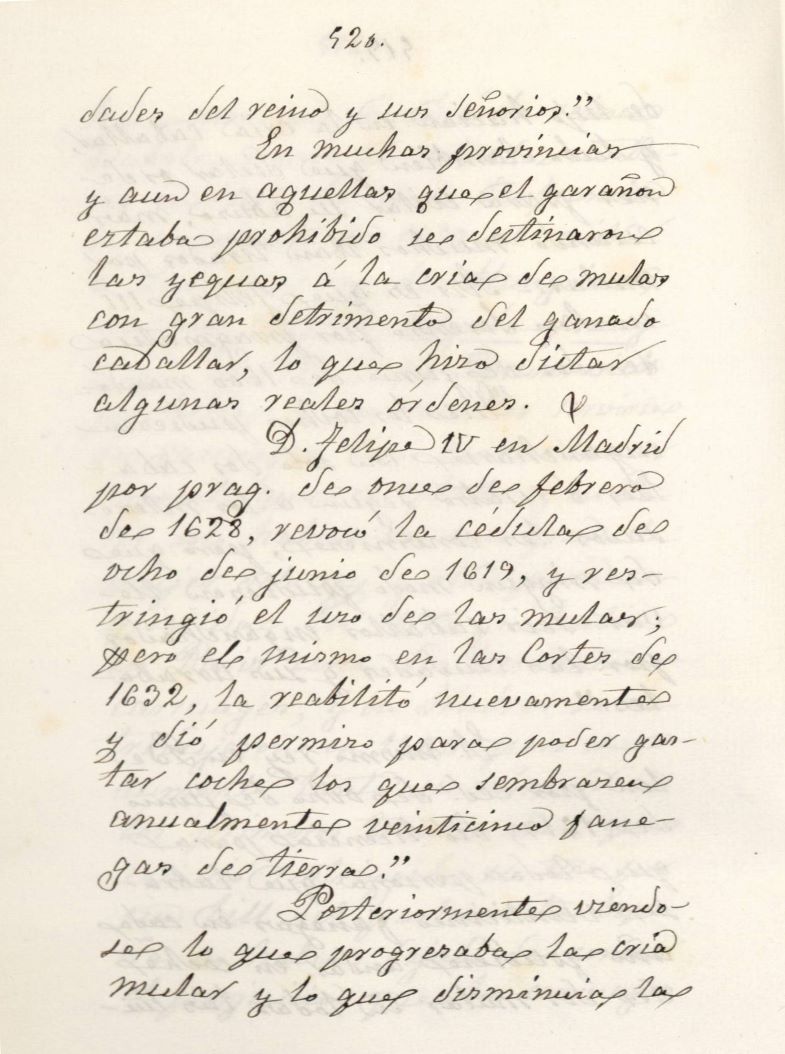 520.
dades del reino y sus señorios."
En muchas provincias
y aun en aquellas que el garañon
estaba prohibido se destinaron
las yeguas á la cria de mulas
con gran detrimento del ganado
caballar, lo que hizo dictar
algunas reales órdenes.
D. Felipe IV en Madrid
por prag. de once de febrero
de 1628, revocó la cédula de
ocho de junio de 1619, y res-
tringió el uso de las mulas;
pero el mismo en las Cortes de
1632, la reabilitó nuevamente
y dió permiso para poder gas-
tar coche los que sembrasen
anualmente veinticinco fane-
gas de tierra."
Posteriormente viendo-
se lo que progresaba la cria
mular y lo que disminuia la